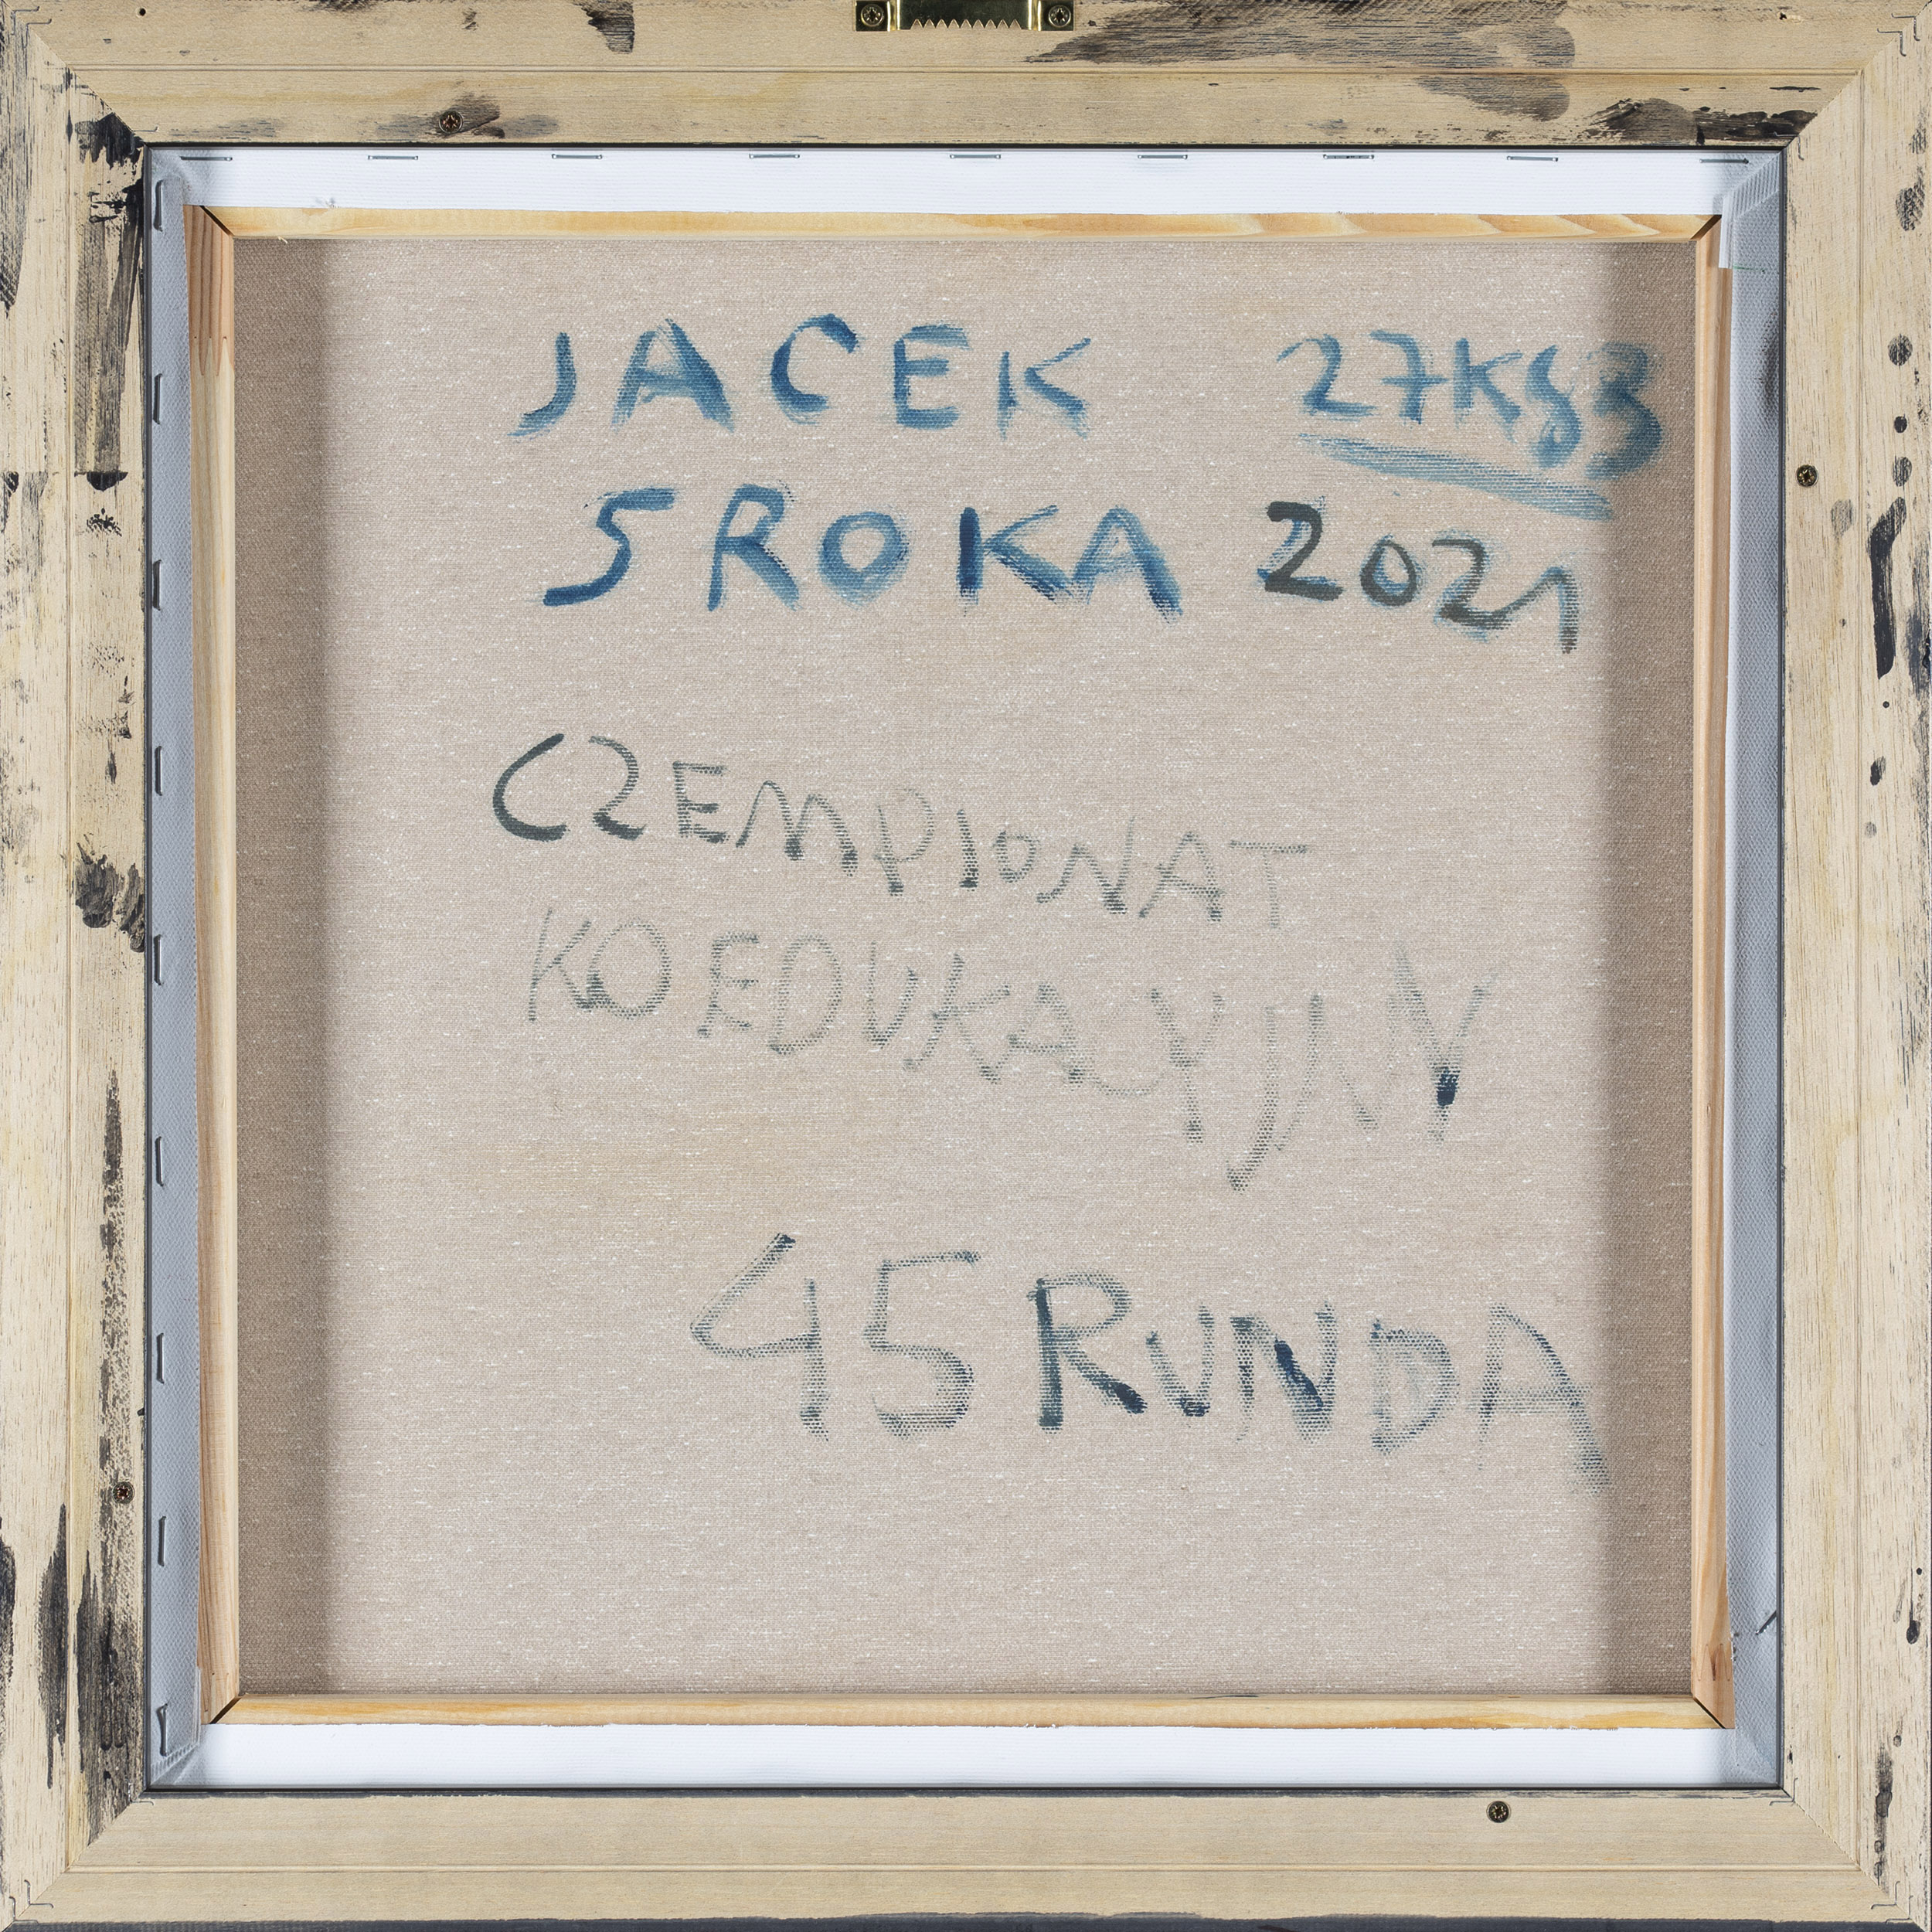 JACEK 27KS83
SROKA 2021
CZEMPIONAT
KOEDUKACYJNY
45 RUNDA